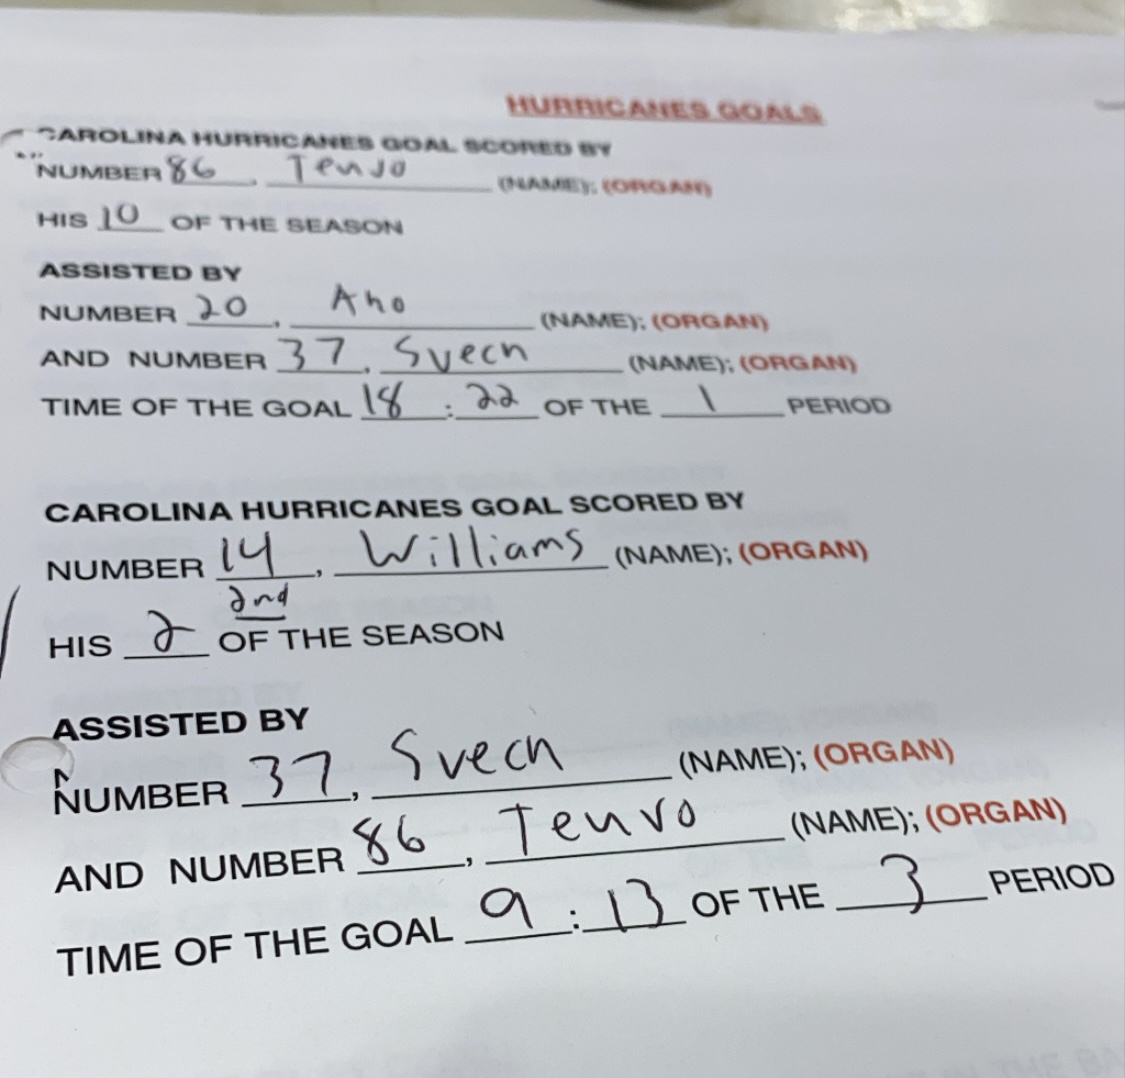 HURRICANES GOALS
CAROLINA HURRICANES GOAL SCORED BY
NUMBER 86, Teuvo (NAME); (ORGAN)
HIS 10 OF THE SEASON
ASSISTED BY
NUMBER 20, Aho (NAME); (ORGAN)
AND NUMBER 37, Svech (NAME); (ORGAN)
TIME OF THE GOAL 18:22 OF THE 1 PERIOD
CAROLINA HURRICANES GOAL SCORED BY
NUMBER 14, Williams (NAME); (ORGAN)
2nd
HIS 2 OF THE SEASON
ASSISTED BY
NUMBER 37, Svech (NAME); (ORGAN)
AND NUMBER 86, Teuvo (NAME); (ORGAN)
TIME OF THE GOAL 9:13 OF THE 3 PERIOD